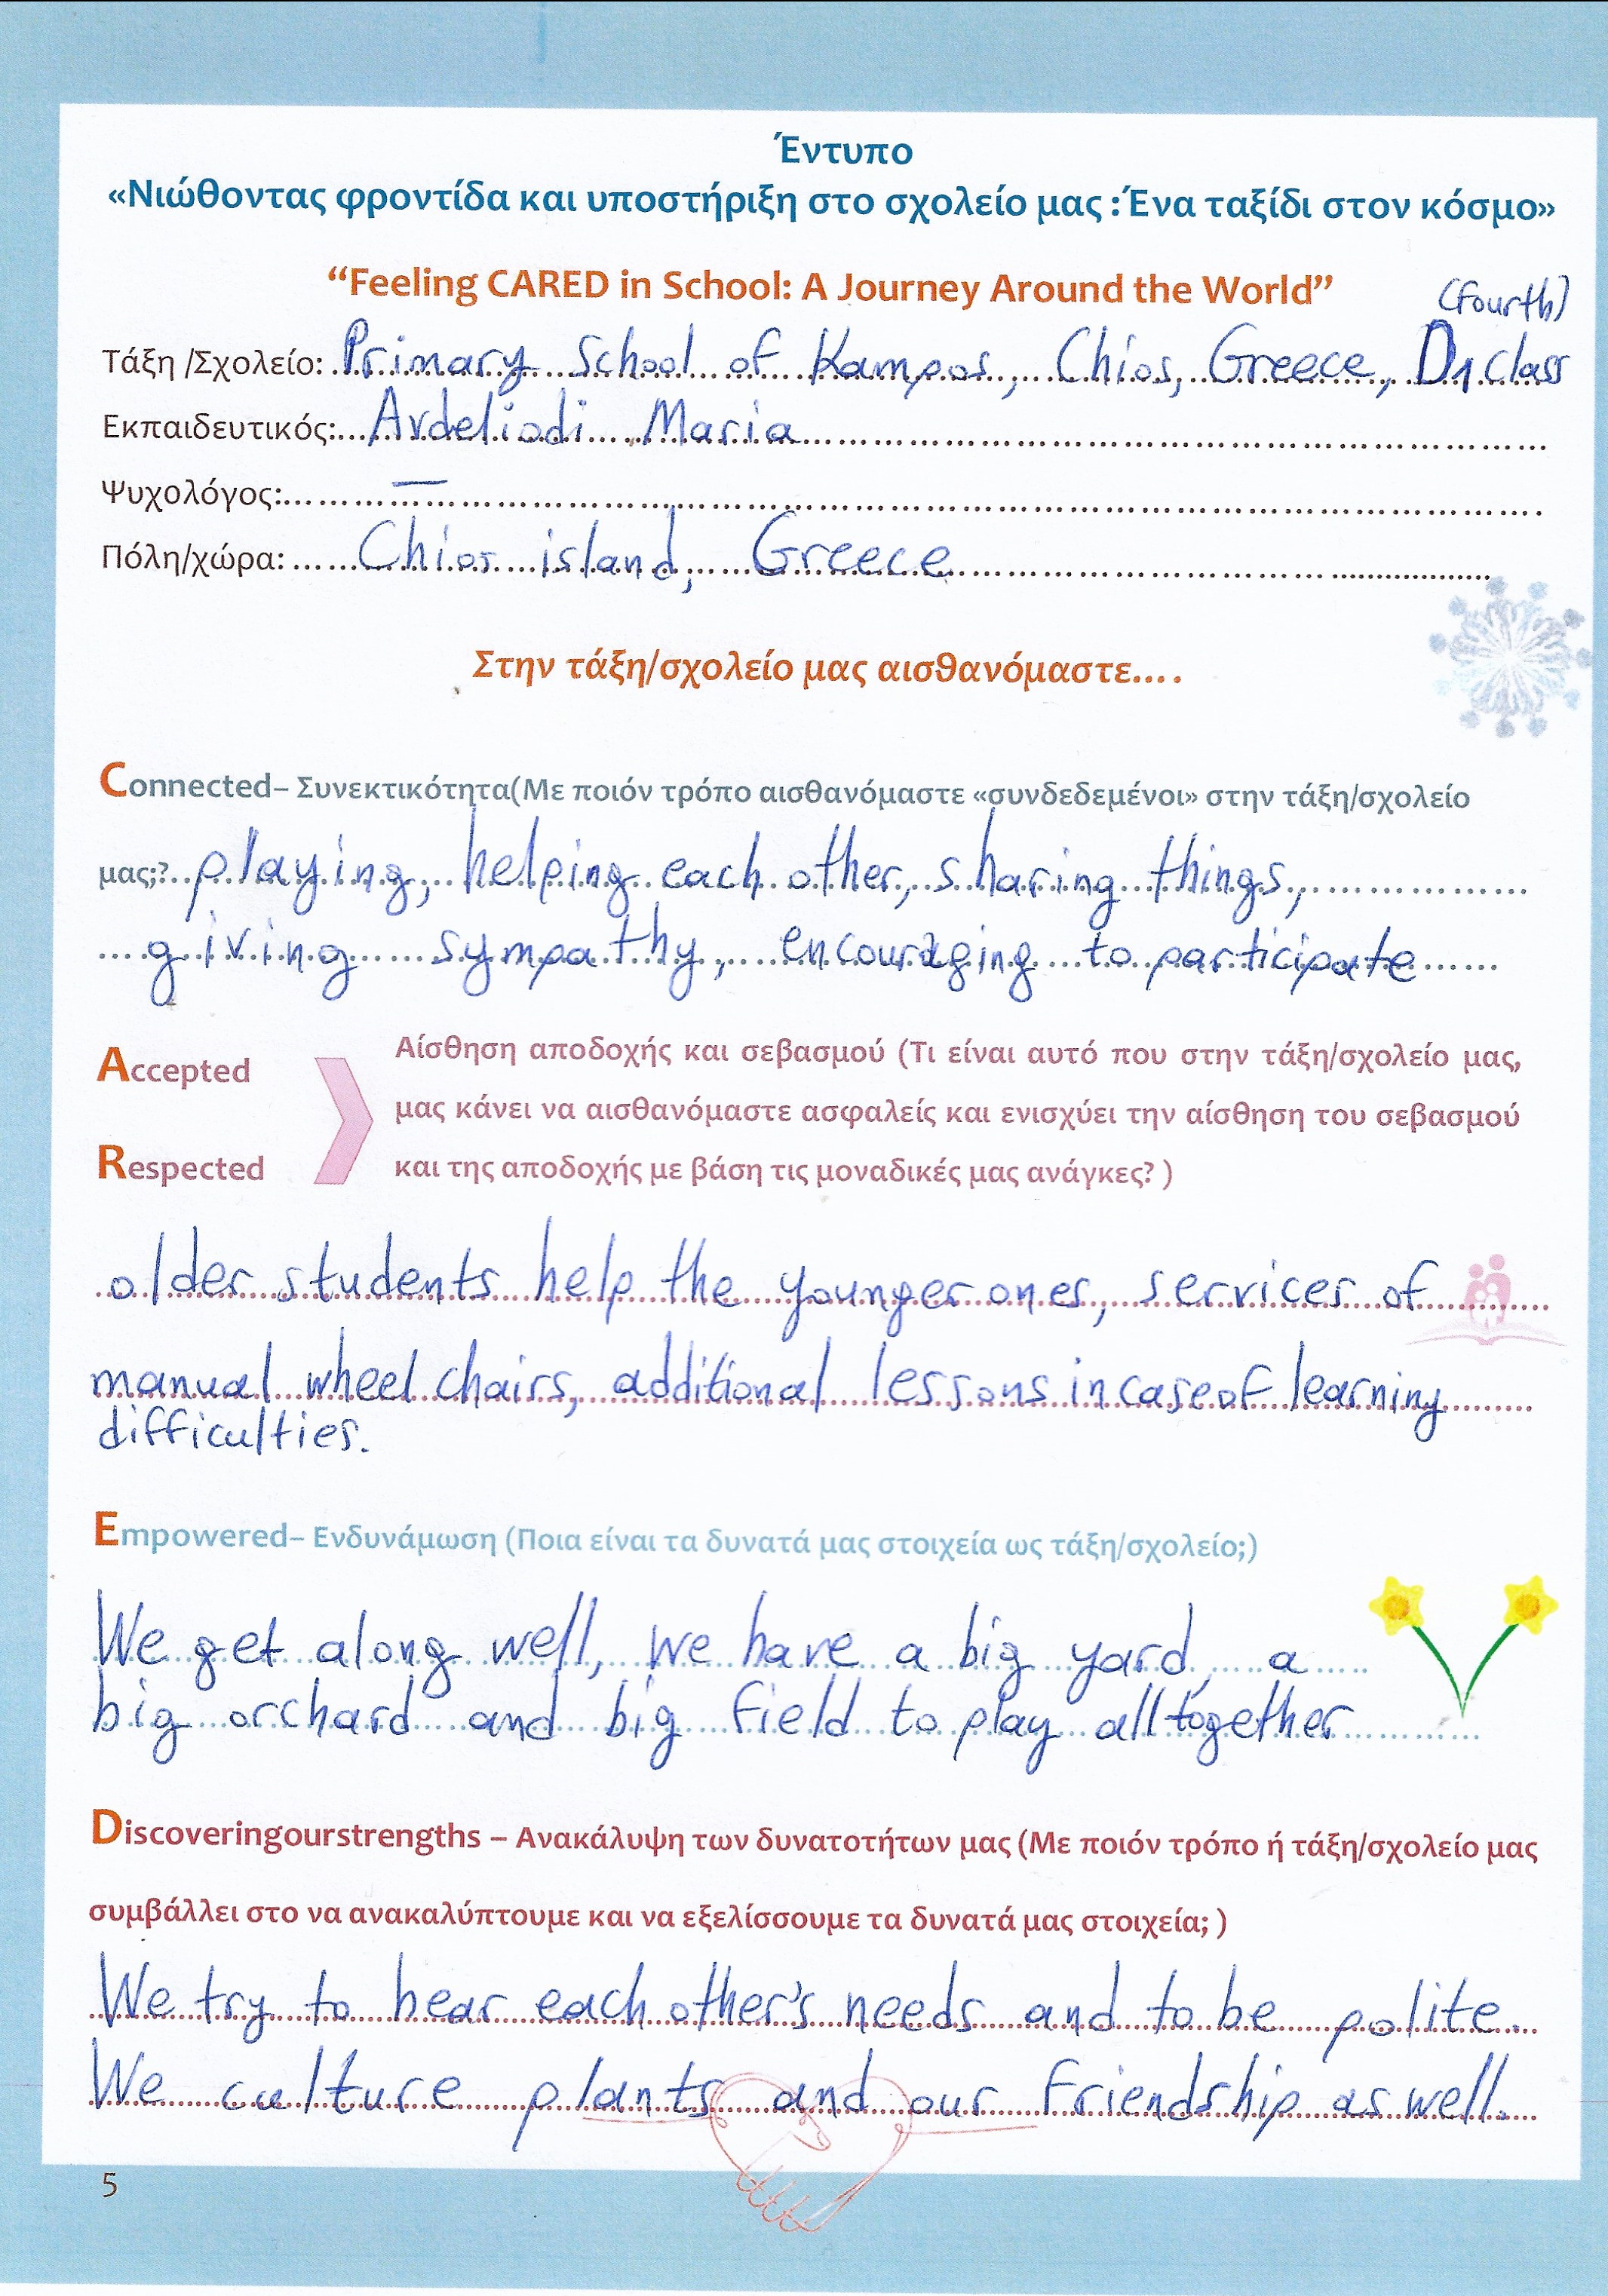 Έντυπο
«Νιώθοντας φροντίδα και υποστήριξη στο σχολείο μας :Ένα ταξίδι στον κόσμο»
“Feeling CARED in School: A Journey Around the World”
(Fourth)
Τάξη /Σχολείο: Primary School of Kampos, Chios, Greece, D1 class
Εκπαιδευτικός:... Avdeliodi Maria
Ψυχολόγος:... —
Πόλη/χώρα: ... Chios island, Greece
Στην τάξη/σχολείο μας αισθανόμαστε....
Connected– Συνεκτικότητα(Με ποιόν τρόπο αισθανόμαστε «συνδεδεμένοι» στην τάξη/σχολείο
μας;?.. playing, helping each other, sharing things,
giving sympathy, encouraging to participate
Accepted
Respected
Αίσθηση αποδοχής και σεβασμού (Τι είναι αυτό που στην τάξη/σχολείο μας,
μας κάνει να αισθανόμαστε ασφαλείς και ενισχύει την αίσθηση του σεβασμού
και της αποδοχής με βάση τις μοναδικές μας ανάγκες? )
older students help the younger ones, services of
manual wheel chairs, additional lessons in case of learning
difficulties.
Empowered– Ενδυνάμωση (Ποια είναι τα δυνατά μας στοιχεία ως τάξη/σχολείο;)
We get along well, we have a big yard, a
big orchard and big field to play alltogether
Discoveringourstrengths – Ανακάλυψη των δυνατοτήτων μας (Με ποιόν τρόπο ή τάξη/σχολείο μας
συμβάλλει στο να ανακαλύπτουμε και να εξελίσσουμε τα δυνατά μας στοιχεία; )
We try to hear each other's needs and to be polite.
We culture plants and our friendship as well.
5